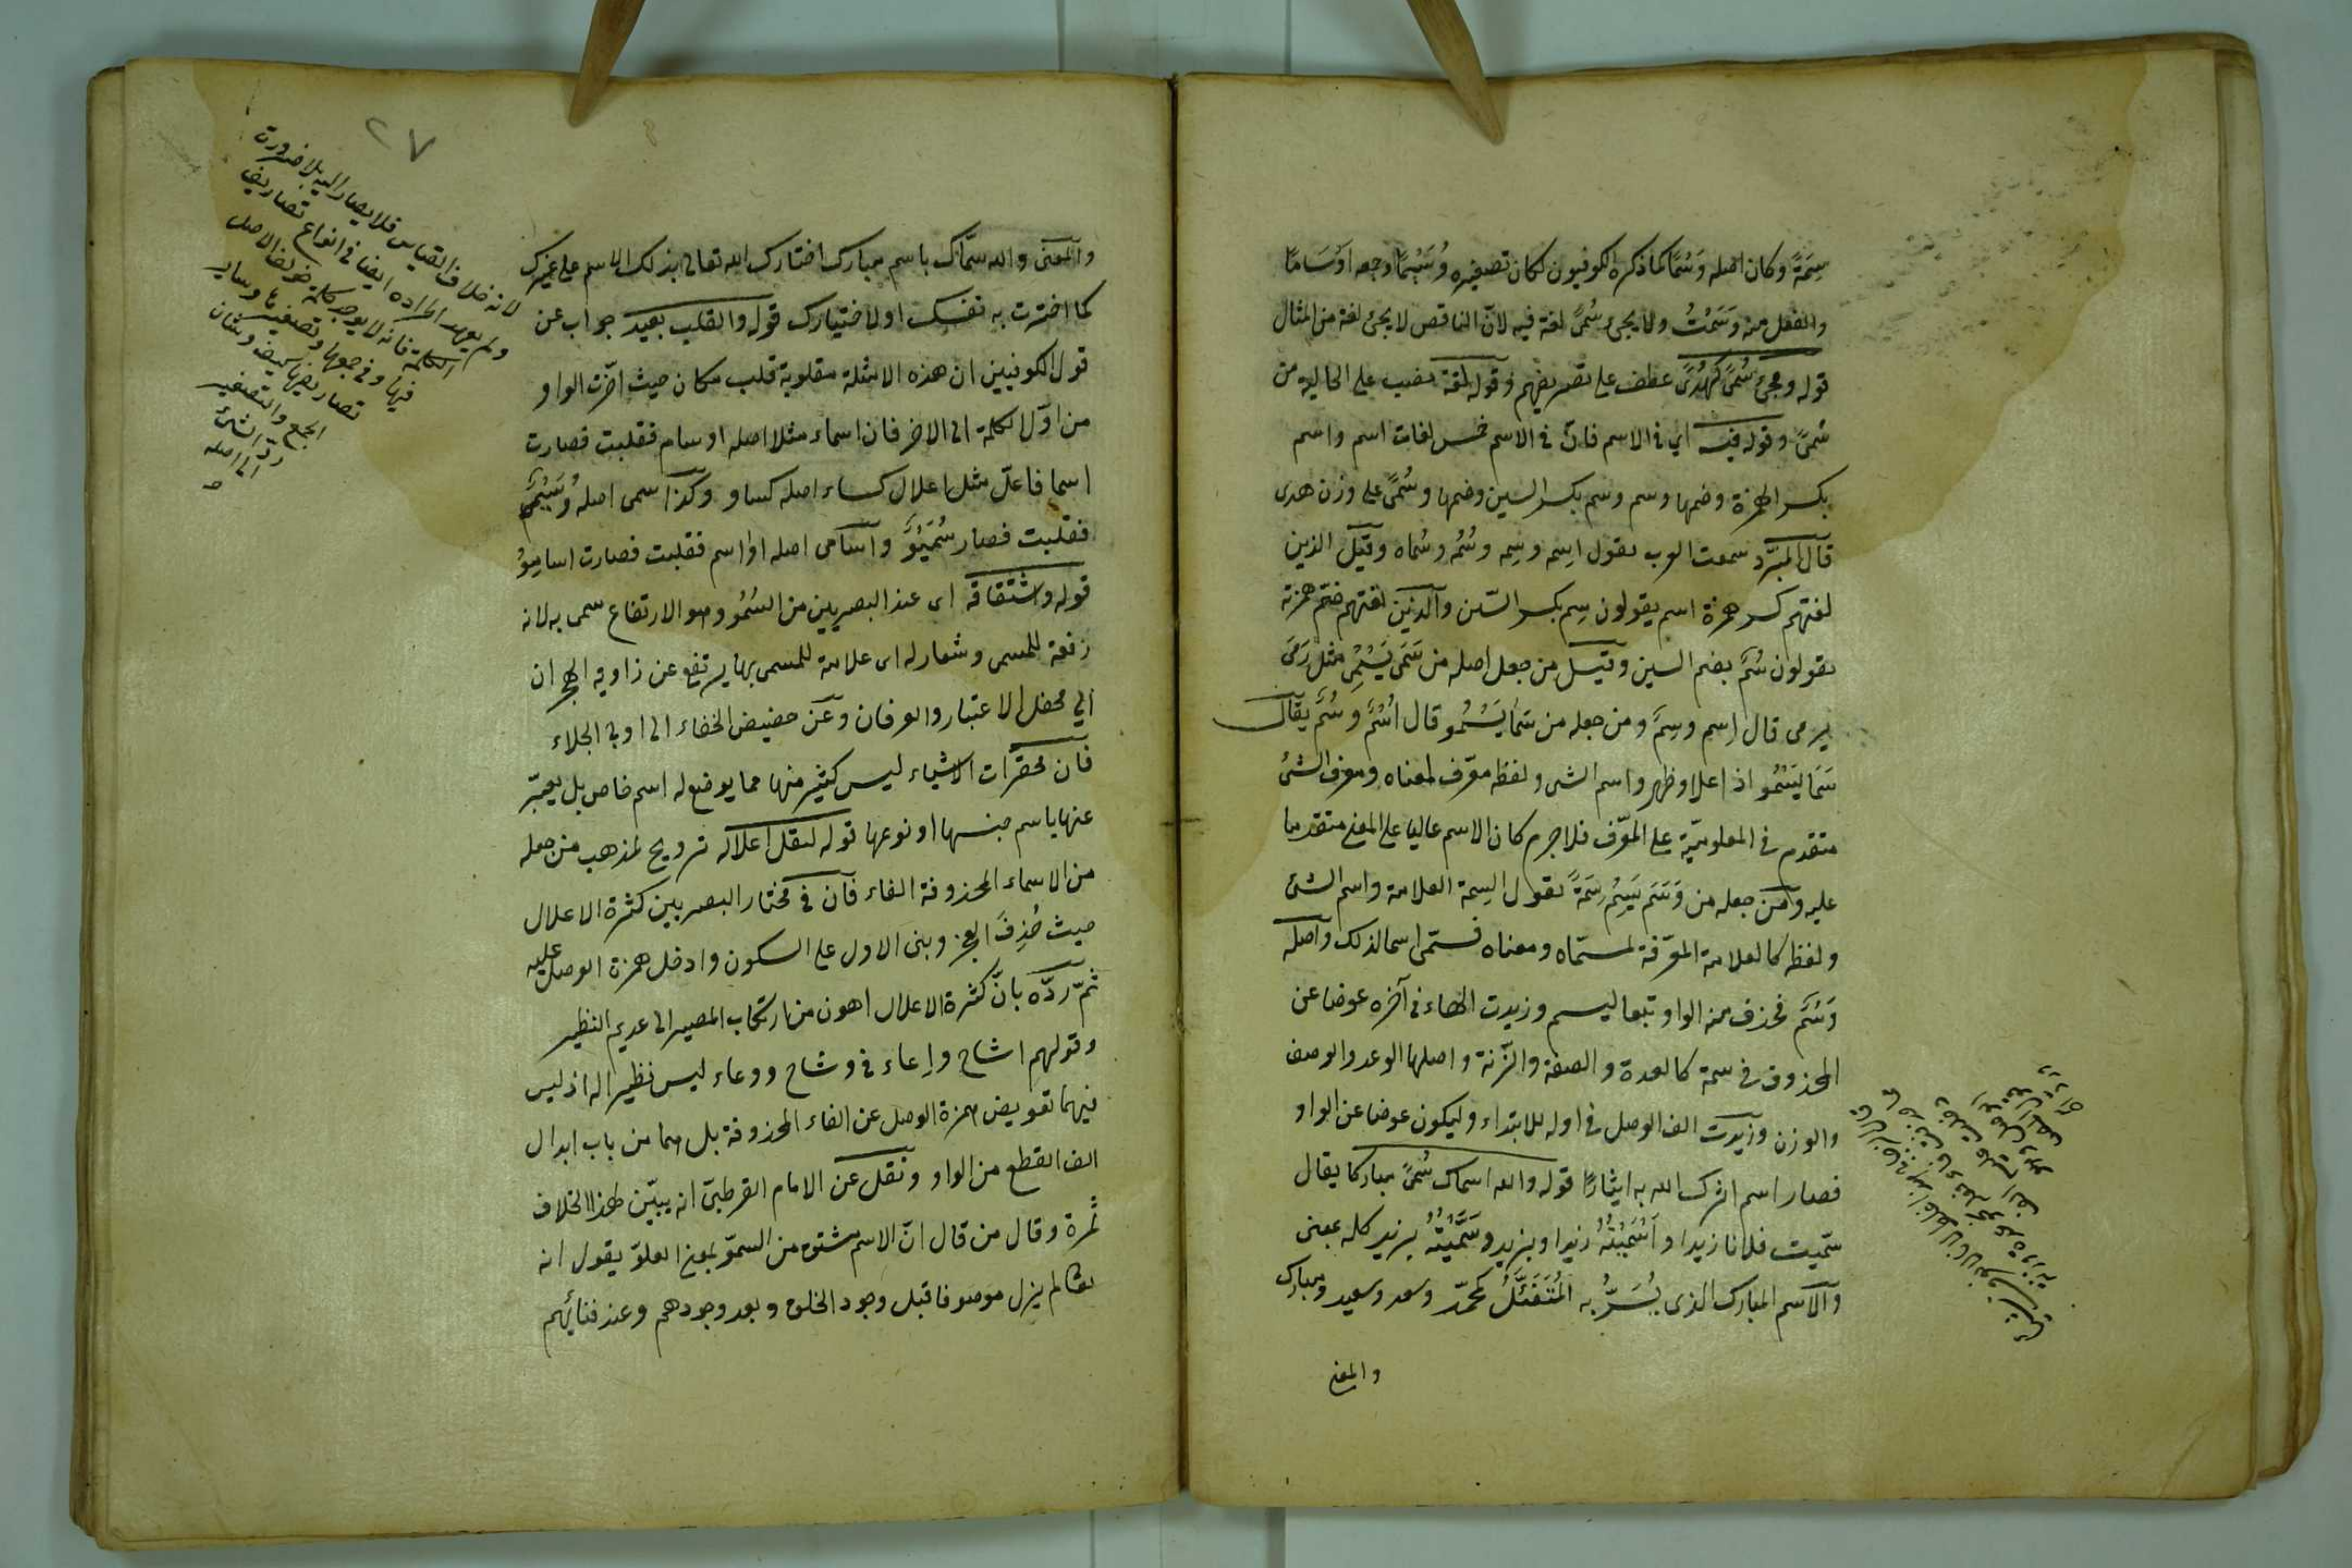 سِمَةً وكان اصله وَسْمًا كما ذكره الكوفيون لكان تصغيره وُسَيْمًا وجمعه اَوْسَامًا
والفعل منه وَسَمْتُ ولا يجئ سُمًى لغة فيه لانّ الناقص لا يجئ لغة من المثال
قوله ومجئ سُمًى كهُدًى عطف على تصريفهم وقوله لغة نصب على الحالية من
سُمًى وقوله فيه اى فى الاسم فانّ فى الاسم خمس لغات اسم واسم
بكسر الهمزة وضمها وسم وسم بكسر السين وضمها وسُمًى على وزن هدى
قال المبرّد سمعت العرب تقول اِسِمه وسِمه وسُمُه وسُماه وقيل الذين
لغتهم كسر همزة اسم يقولون سِم بكسر السّين والذين لغتهم ضمّ همزته
يقولون سُمٌ بضم السين وقيل من جعل اصله من سَمَى يَسْمِى مثل رَمَى
يرمى قال اِسم وسِمٌ ومن جعله من سَمَا يَسْمُو قال اُسْمٌ وسُمٌ يقال
سَمَا يَسْمُو اذا علا وظهر واسم الشى ولفظه معرّف لمعناه ومعرف الشئ
متقدم فى المعلوميّة على المعرّف فلا جرم كان الاسم عاليا على المعنى متقدما
عليه وامن جعله من وَسَمَ يَسِمُ سِمَةً يقول السِمة العلامة واسم الشئ
ولفظه كالعلامة المعرّفة لمسمّاه ومعناه فسمّى اسما لذلك واصله
وَسْمٌ فحذف منه الواو تبعا ليسم وزيدت الهاء فى آخره عوضا عن
المحذوف فى سمة كالعدة والصفة والزّنة واصلها الوعد والوصف
والوزن وزيدت الف الوصل فى اوله للابتداء وليكون عوضا عن الواو
فصار اسم اثرك الله به ايثارًا قوله والله اسماك سُمًى مباركا يقال
سمّيت فلانا زيدا واَسْمَيْتُهُ زيدا وبزيد وسَمَّيْتُهُ بزيد كله بمعنى
والاسم المبارك الذى يُسَرُّ به المُتَفَئِّلُ كمحمّد وسعد وسعيد ومبارك
والمعنى
٢٧
والمعنى والله سمّاك باسم مبارك اختارك الله تعالى بذلك الاسم على غيرك
كما اخترت به نفسك او لاختيارك قوله والقلب بعيد جواب عن
قول الكوفيين ان هذه الامثلة مقلوبة قلب مكان حيث اخّرت الواو
من اوّل الكلمة الى الاخر فان اسماء مثلا اصله اوسام فقلبت فصارت
اسما فاعلّ مثل اعلال كساء اصله كساو وكذا سمى اصله وُسَيْمٌ
فقلبت فصار سُمَيْوٌ واسامى اصله اواسم فقلبت فصارت اساميوُ
قوله واشتقاقه اى عند البصريين من السُمُو وهو الارتفاع سمى به لانه
رفعة للمسمى وشعار له اى علامة للمسمى بها يرتفع عن زاوية الهجران
الى محفل الاعتبار والعرفان وعن حضيض الخفاء الى اوج الجلاء
فان محقّرات الاشياء ليس كثير منها مما يوضع له اسم خاص بل يعبّر
عنها باسم جنسها او نوعها قوله ليقل اعلاله ترويج لمذهب من جعله
من الاسماء المحذوفة الفاء فان فى مختار البصريين كثرة الاعلال
حيث حُذِفَ العجز وبنى الاول على السكون وادخل همزة الوصل عليه
ثمّ ردّه بانّ كثرة الاعلال اهون من ارتكاب المصير الى عديم النظير
وقولهم اشاح واِعاء فى وشاح ووعاء ليس نظيرا له اذ ليس
فيهما تعويض همزة الوصل عن الفاء المحذوفة بل هما من باب ابدال
الف القطع من الواو ونقل عن الامام القرطبىّ انه يبيّن لهذا الخلاف
ثمرة وقال من قال انّ الاسم مشتق من السموّ بمعنى العلوّ يقول انه
تعالى لم يزل موصوفا قبل وجود الخلق وبعد وجودهم وعند فنائهم
لانه خلاف القياس فلا يصار اليه بلا ضرورة
ولم يعهد اطراده ايضا فى انواع تصاريف
الكلمة فانه لا يوجد كلمة خولف الاصل
فيها وفى جمعها وتصغيرها وساير
تصاريفها كيف وشان
الجمع والتصغير
ردّ الشئ
الى اصله